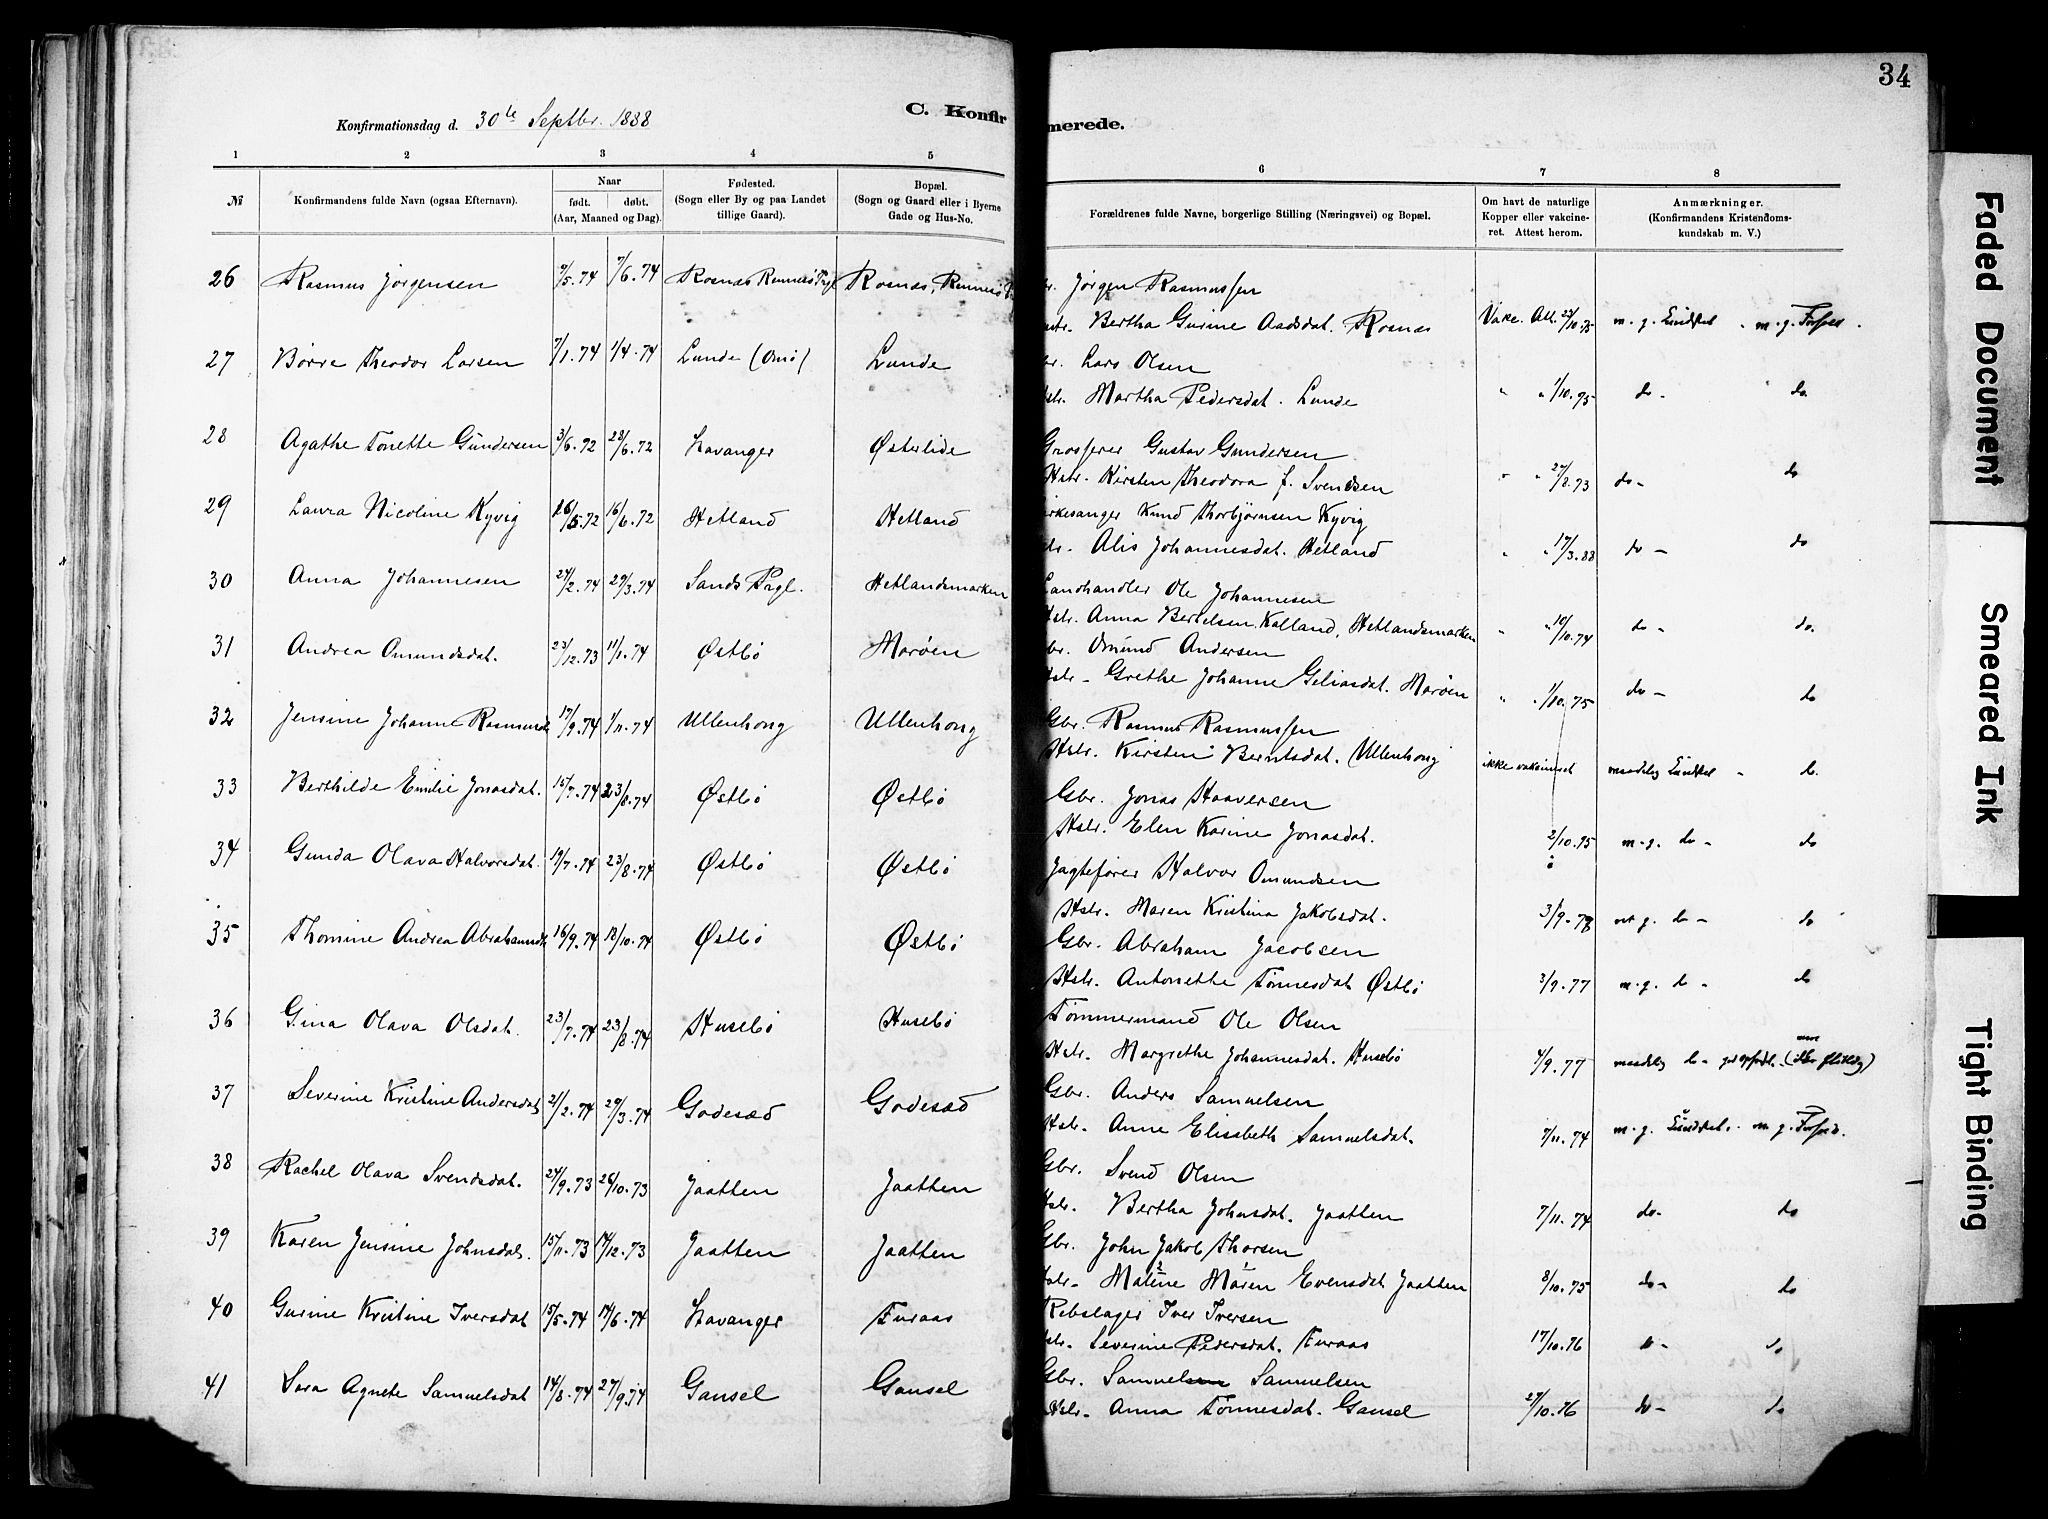 34
Konfirmationsdag d. 30te Septbr. 1888
C. Konfir
merede.
1 2 3 4 5 6 7 8
№
Konfirmandens fulde Navn (ogsaa Efternavn).
Naar
født. døbt.
(Aar, Maaned og Dag).
Fødested.
(Sogn eller By og paa Landet
tillige Gaard).
Bopæl.
(Sogn og Gaard eller i Byerne
Gade og Hus-No.
Forældrenes fulde Navne, borgerlige Stilling (Næringsvei) og Bopæl.
Om havt de naturlige
Kopper eller vakcine-
ret. Attest herom.
Anmærkninger.
(Konfirmandens Kristendoms-
kundskab m. V.)
26 Rasmus Jørgensen 7/5.74 7/6.74 Rosnæs Rennesø Prgl Rosnæs, Rennesø
Jørgen Rasmussen
Bertha Gurine Aadsdat. Rosnæs Vakc. Att. 27/10.75 m. g. Kundskab m. g. Forhold
27 Børre Theodor Larsen 7/1.74 1/4.74 Lunde (Omø) Lunde
Lars Olsen
Martha Pedersdat. Lunde " " 1/10.75 do do
28 Agathe Tonette Gundersen 3/6.72 23/6.72 Stavanger Østerlide
Grosserer Gustav Gundersen
Hstr. Kirsten Theodora f. Svendsen " " 27/2.73 do do
29 Laura Nicoline Kyvig 26/5.72 16/6.72 Hetland Hetland
irkesanger Knud Thorbjørnsen Kyvig
Alis Johannesdat. Hetland " " 17/3.88 do do
30 Anna Johannesen 24/2.74 29/3.74 Sands Prgl. Hetlandsmarken
Landhandler Ole Johannesen
Hstr. Anna Bertelsen Kalland, Hetlandsmarken " " 10/10.74 do do
31 Andrea Omundsdat. 23/12.73 11/1.74 Østbø Marøen
Omund Andersen
Hstr. Grethe Johanne Geliasdat. Marøen " " 1/10.75 do do
32 Jensine Johanne Rasmusd. 17/9.74 1/11.74 Ullenhoug Ullenhoug
Gbr. Rasmus Rasmussen
Hstr. Kirsten Berntsdat. Ullenhoug ikke vakcineret maadelig Kundskab do
33 Berthilde Emilie Jonasdat. 15/7.74 23/8.74 Østbø Østbø
Gbr. Jonas Haaversen
Hstr. Elen Karine Jonasdat. 2/10.75 m. g. do do
34 Gunda Olava Halvorsdat. 19/7.74 23/8.74 Østbø Østbø
Jagtefører Halvor Omundsen
Hstr. Maren Kristina Jakobsdat. 3/9.78 m. g. do do
35 Thomine Andrea Abrahamsd. 16/9.74 18/10.74 Østbø Østbø
Gbr. Abraham Jacobsen
Hstr. Antonette Tønnesdat Østbø 3/9.77 m. g. do do
36 Gina Olava Olsdat. 23/7.74 23/8.74 Husebø Husebø
Tømmermand Ole Olsen
Hstr. Margrethe Johannesdat. Husebø 4/9.77 maadelig do
37 Severine Kristine Andersdat 21/2.74 29/3.74 Godesæd Godesæd
Gbr. Anders Samuelsen
Hstr. Anne Elisabeth Samuelsdat. 7/11.74 m. g. Kundskab. m g. Forhold.
38 Rachel Olava Svendsdat. 24/9.73 26/10.73 Jaatten Jaatten
Gbr. Svend Olsen
Hstr. Bertha Johnsdat. Jaatten 7/11.74 do do
39 Karen Jensine Johnsdat. 15/11.73 14/12.73 Jaatten Jaatten
Gbr. John Jakob Thorsen
Hstr. Maline Maren Evensdat Jaatten 8/10.75 do do
40 Gurine Kristine Iversdat 15/5.74 14/6.74 Stavanger Furaas
Rebslager Iver Iversen
Severine Pedersdat. Furaas 17/10.76 do do
41 Sara Agnete Samuelsdat 14/8.74 27/9.74 Gausel Gausel
Gbr. Samuel Samuelsen
Hstr. Anna Tønnesdat. Gausel 27/10.76 do do
Faded Document
Smeared Ink
Tight Binding